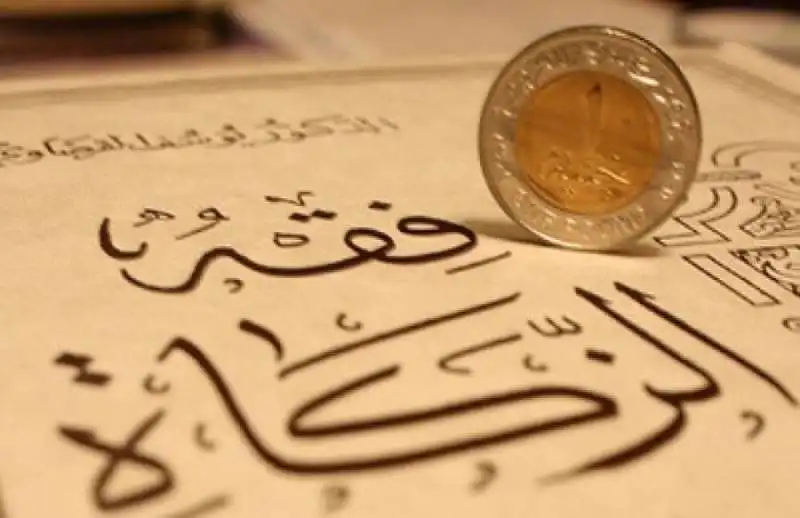 الدكتور يوسف القرضاوي
فِقْهُ
الزَّكَاة
١